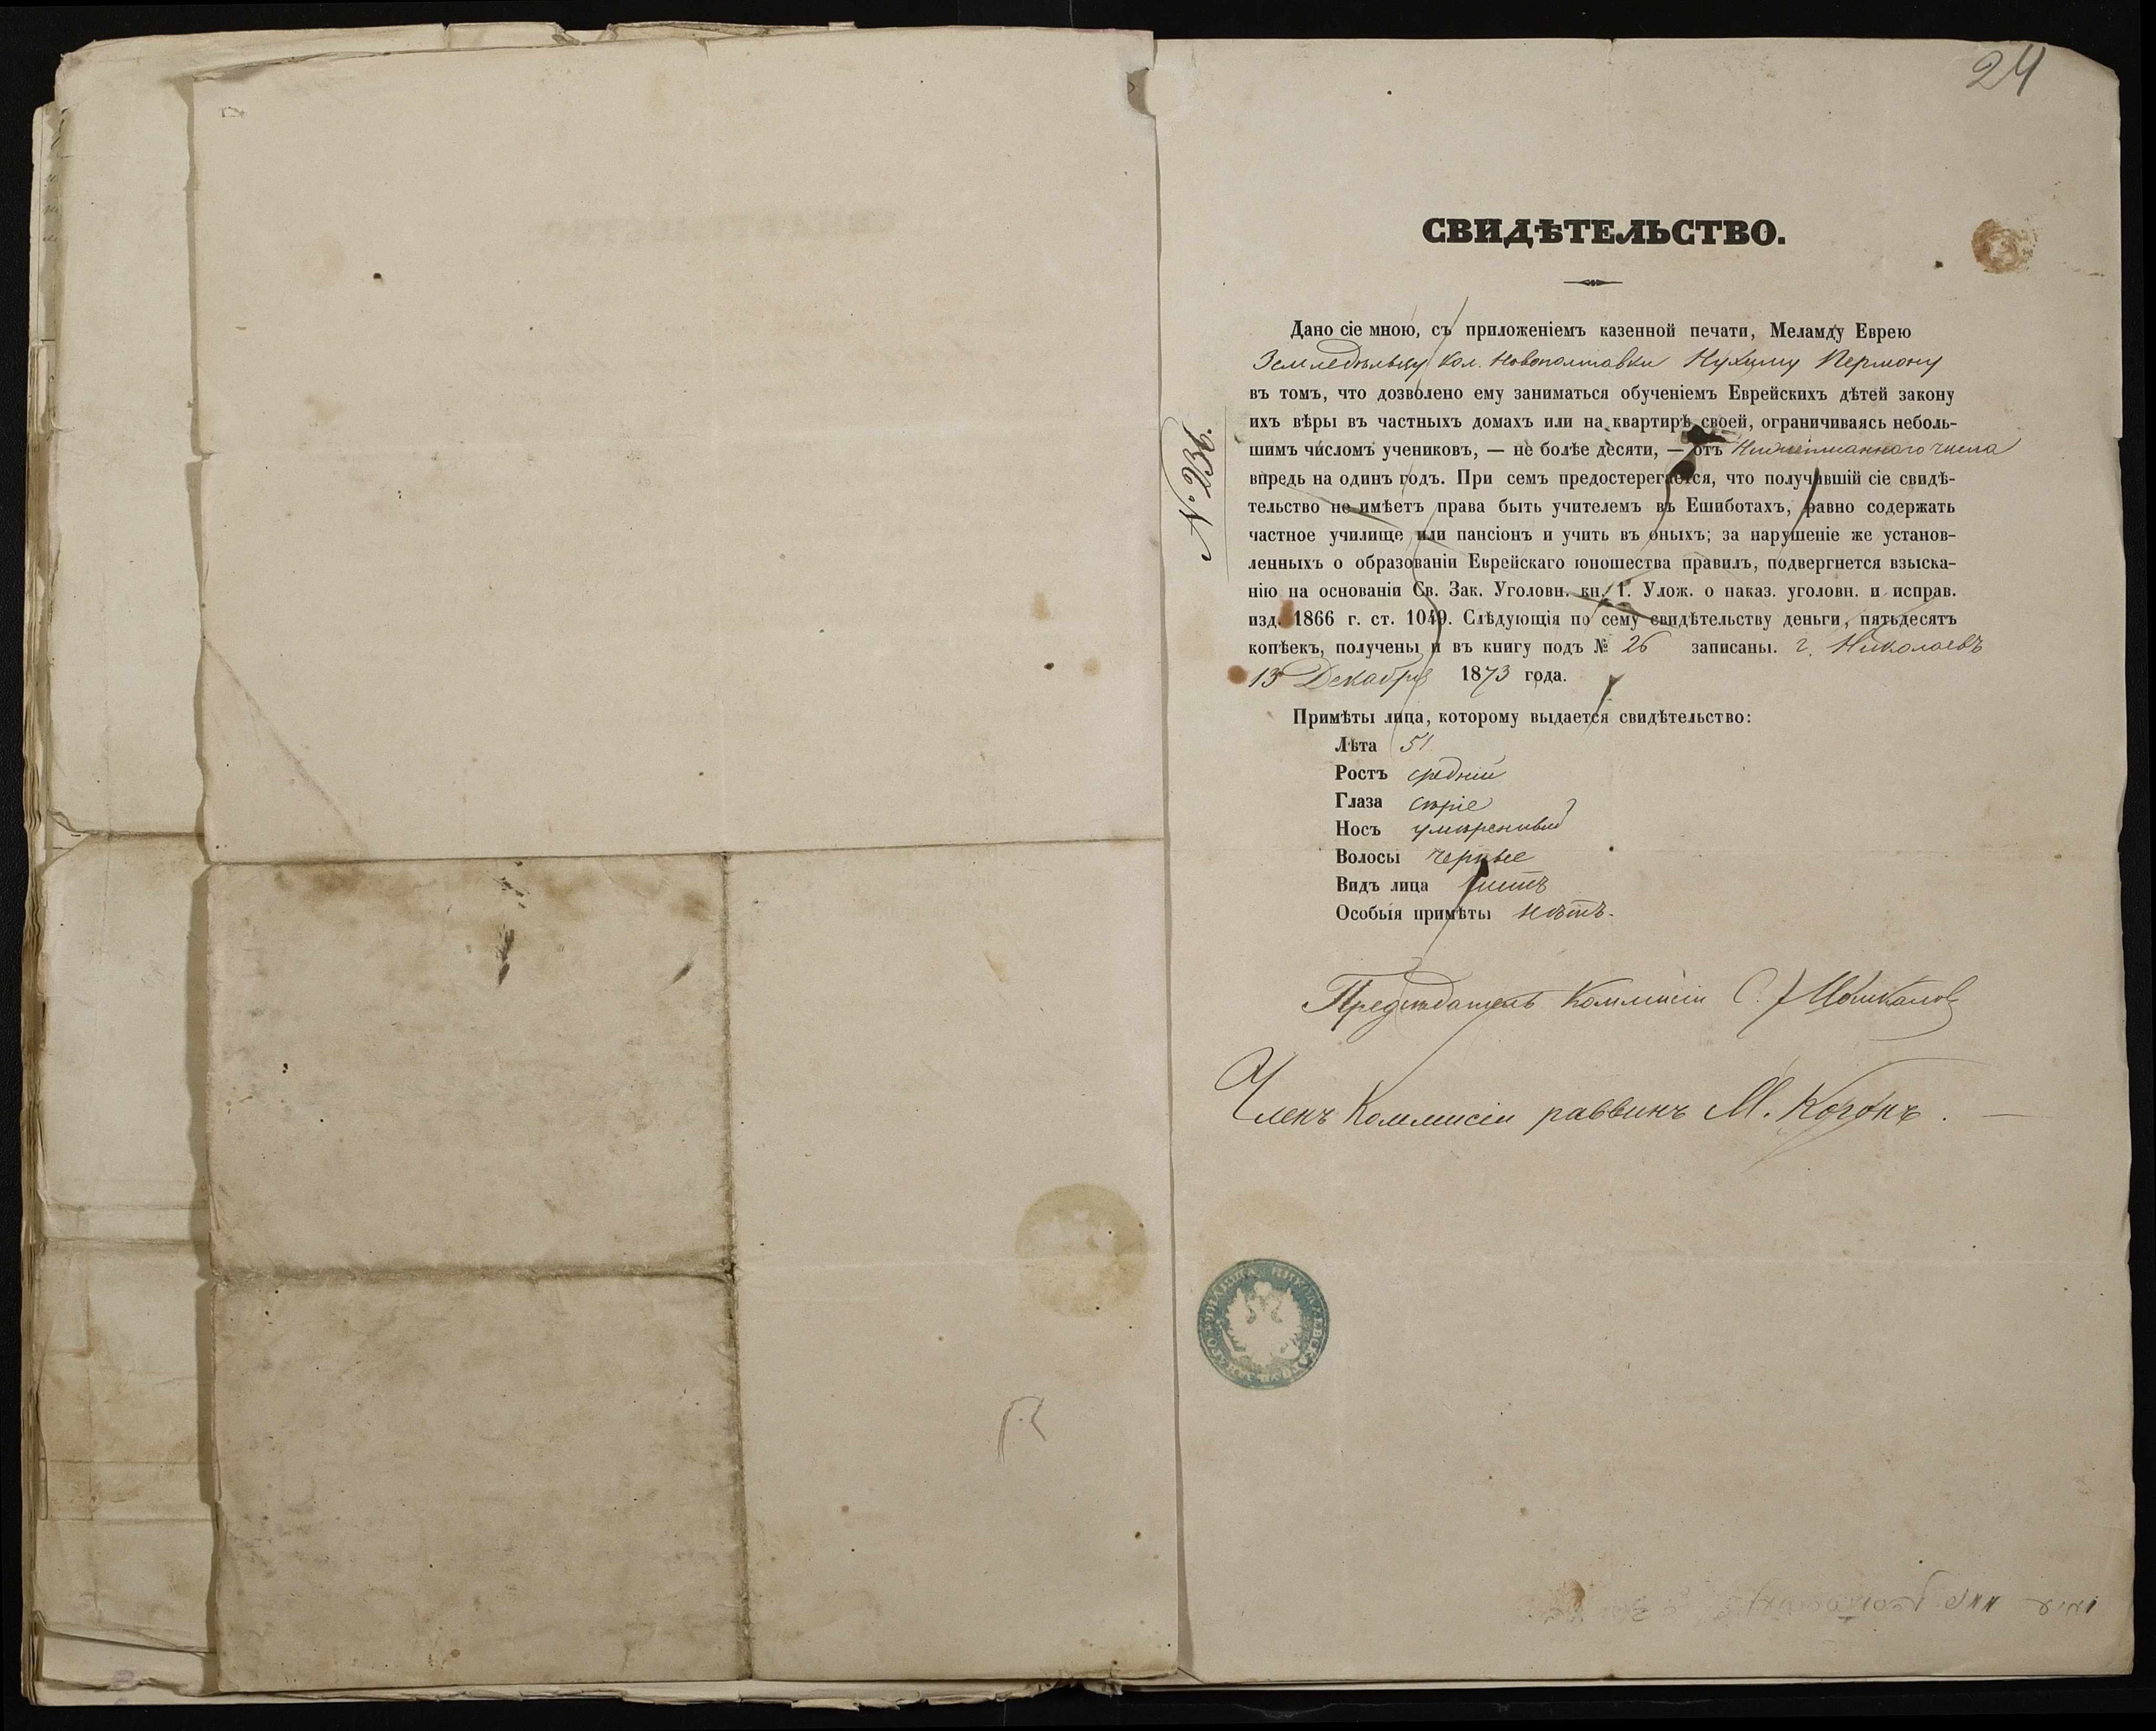 24
СВИДѢТЕЛЬСТВО.
№ 236.
Дано сіе мною, съ приложеніемъ казенной печати, Меламду Еврею
Земледѣльцу Кол. Новополтавки Нухиму Перману
въ томъ, что дозволено ему заниматься обученіемъ Еврейскихъ дѣтей закону
ихъ вѣры въ частныхъ домахъ или на квартирѣ своей, ограничиваясь неболь-
шимъ числомъ учениковъ, — не болѣе десяти, — отъ Нижеписаннаго числа
впредь на одинъ годъ. При семъ предостерегается, что получавшій сіе свидѣ-
тельство не имѣетъ права быть учителемъ въ Ешиботахъ, равно содержать
частное училище или пансіонъ и учить въ оныхъ; за нарушеніе же установ-
ленныхъ о образованіи Еврейскаго юношества правилъ, подвергнется взыска-
нію на основаніи Св. Зак. Уголовн. кн. 1. Улож. о наказ. уголовн. и исправ.
изд. 1866 г. ст. 1049. Слѣдующія по сему свидѣтельству деньги, пятьдесятъ
копѣекъ, получены и въ книгу подъ № 26 записаны. г. Николаевъ
13 Декабря 1873 года.
Примѣты лица, которому выдается свидѣтельство:
Лѣта 51.
Ростъ средній
Глаза сѣріе
Носъ умѣренный
Волосы черные
Видъ лица чистъ
Особыя примѣты нѣтъ.
Предсѣдатель Коммисіи С.
Членъ Коммисіи раввинъ М. Коганъ.